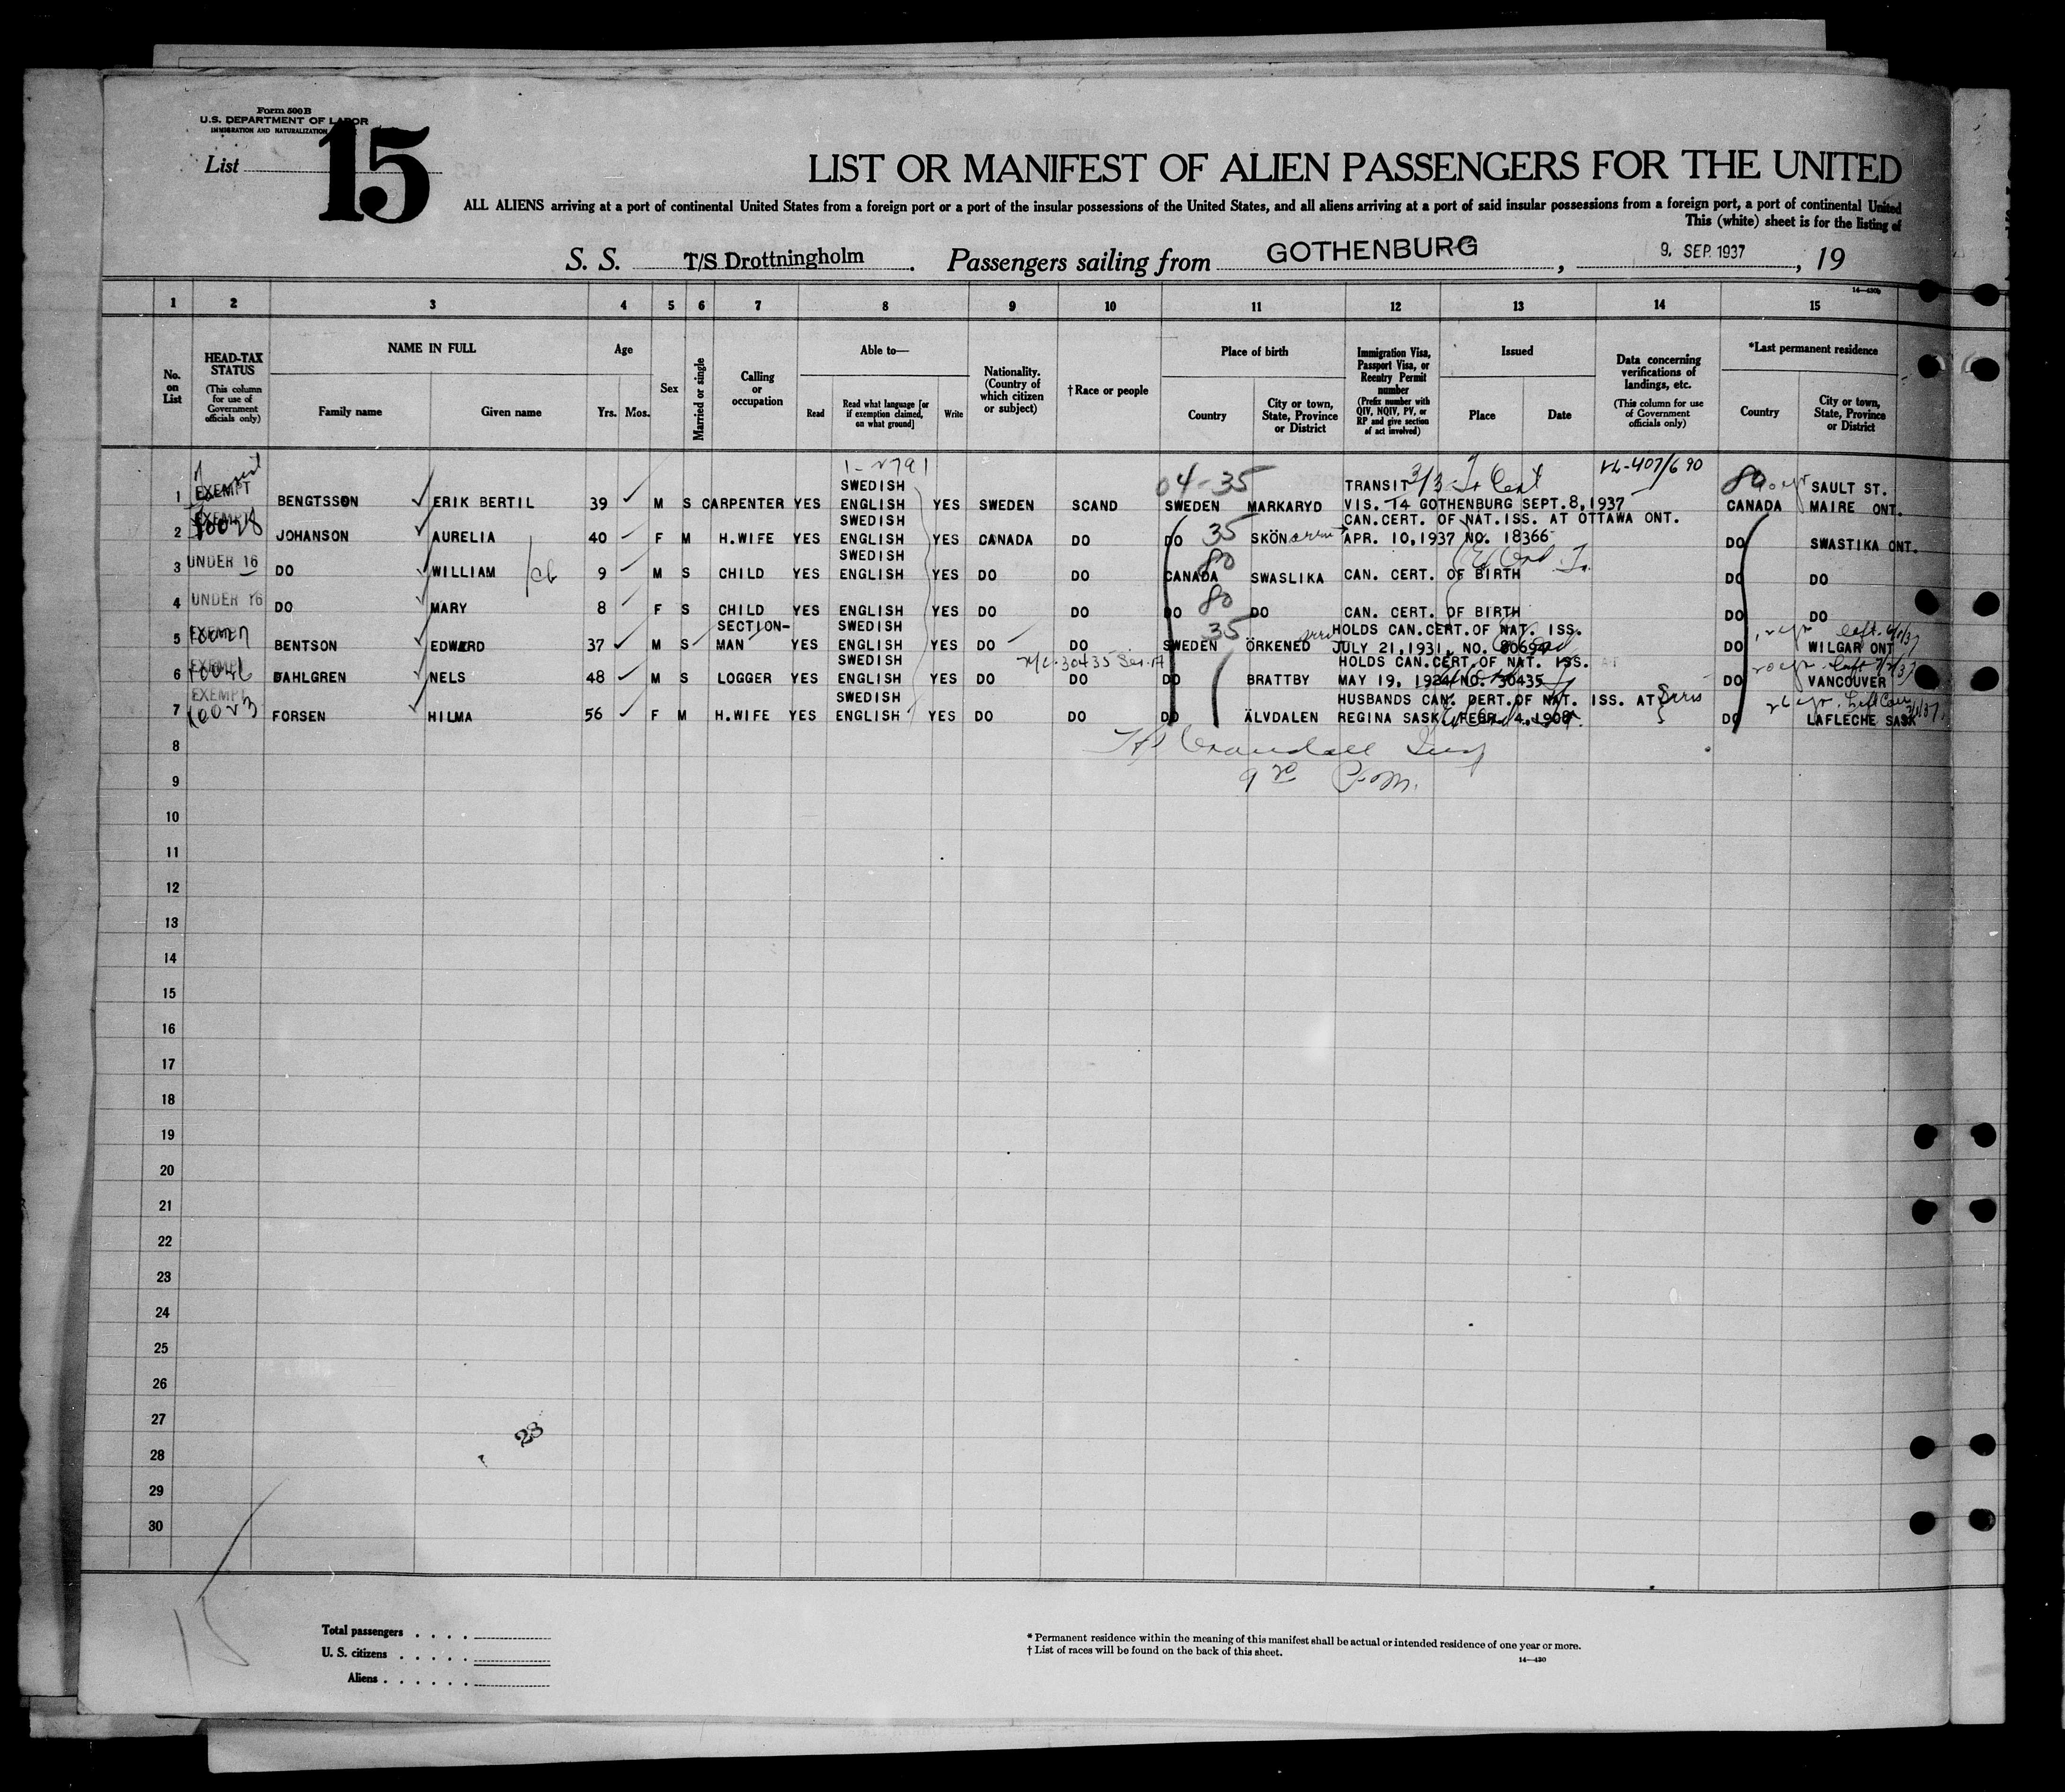 Form 500 B
U.S. DEPARTMENT OF LABOR
IMMIGRATION AND NATURALIZATION
List 15
LIST OR MANIFEST OF ALIEN PASSENGERS FOR THE UNITED
ALL ALIENS arriving at a port of continental United States from a foreign port or a port of the insular possessions of the United States, and all aliens arriving at a port of said insular possessions from a foreign port, a port of continental United
This (white) sheet is for the listing of
S. S. T/S Drottningholm. Passengers sailing from GOTHENBURG, 9. SEP. 1937, 19
14—430b
1 2 3 4 5 6 7 8 9 10 11 12 13 14 15
No. on List
HEAD-TAX STATUS (This column for use of Government officials only)
NAME IN FULL
Family name Given name
Age
Yrs. Mos.
Sex
Married or single
Calling or occupation
Able to—
Read Read what language [or if exemption claimed, on what ground] Write
Nationality. (Country of which citizen or subject)
† Race or people
Place of birth
Country City or town, State, Province or District
Immigration Visa, Passport Visa, or Reentry Permit number (Prefix number with QIV, NQIV, PV, or RP and give section of act involved)
Issued
Place Date
Data concerning verifications of landings, etc. (This column for use of Government officials only)
*Last permanent residence
Country City or town, State, Province or District
04-35
SWEDISH TRANSIT SAULT ST.
1 EXEMPT BENGTSSON ERIK BERTIL 39 M S CARPENTER YES ENGLISH YES SWEDEN SCAND SWEDEN MARKARYD VIS. T4 GOTHENBURG SEPT.8,1937 CANADA MAIRE ONT.
EXEMPT SWEDISH CAN.CERT. OF NAT.ISS. AT OTTAWA ONT.
2 JOHANSON AURELIA 40 F M H.WIFE YES ENGLISH YES CANADA DO DO 35 SKÖN APR. 10,1937 NO. 18366 DO SWASTIKA ONT.
SWEDISH 80
3 UNDER 16 DO WILLIAM 9 M S CHILD YES ENGLISH YES DO DO CANADA SWASLIKA CAN. CERT. OF BIRTH DO DO
4 UNDER 16 DO MARY 8 F S CHILD YES ENGLISH YES DO DO DO 80 DO CAN. CERT. OF BIRTH DO DO
SECTION- SWEDISH 35 HOLDS CAN.CERT.OF NAT. ISS.
5 EXEMPT BENTSON EDWARD 37 M S MAN YES ENGLISH YES DO DO SWEDEN ÖRKENED JULY 21,1931, NO. DO WILGAR ONT
SWEDISH HOLDS CAN.CERT.OF NAT. ISS. AT
6 EXEMPT DAHLGREN NELS 48 M S LOGGER YES ENGLISH YES DO DO DO BRATTBY MAY 19, 1924 NO. 30435 DO VANCOUVER
EXEMPT SWEDISH HUSBANDS CAN. DERT.OF NAT. ISS. AT
7 FORSEN HILMA 56 F M H.WIFE YES ENGLISH YES DO DO DO ÄLVDALEN REGINA SASK. FEBR. 4,1908 DO LAFLECHE SASK
8
9
10
11
12
13
14
15
16
17
18
19
20
21
22
23
24
25
26
27
23
28
29
30
Total passengers
U. S. citizens
Aliens
* Permanent residence within the meaning of this manifest shall be actual or intended residence of one year or more.
† List of races will be found on the back of this sheet.
14—430